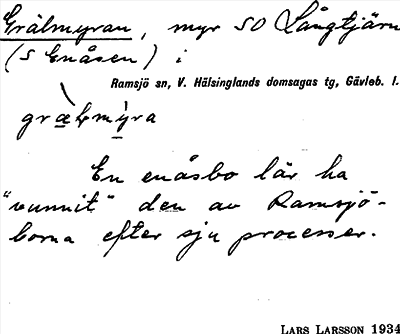 Grälmyran, myr SO Långtjärn
(S Enåsen) i
Ramsjö sn, V. Hälsinglands domsagas tg, Gävleb. l.
græLmỳra
En enåsbo lär ha
"vunnit" den av Ramsjö-
borna efter sju processer.
LARS LARSSON 1934